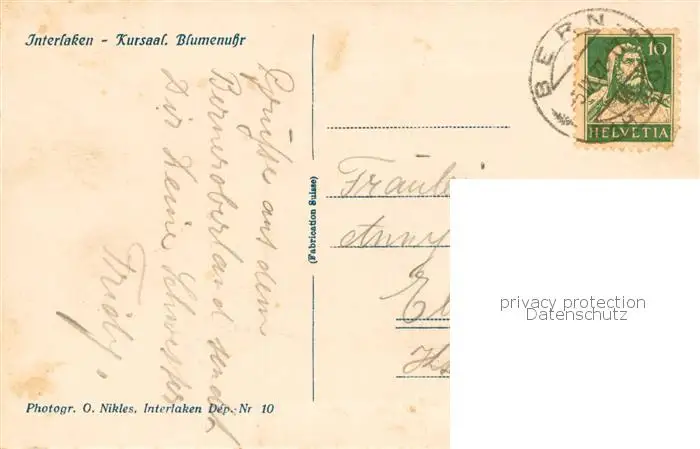 Interlaken - Kursaal. Blumenuhr
Grüsse aus dem
Berneroberland sendet
Dir Deine Schwester
Friedy.
Photogr. O. Nikles, Interlaken Dép. Nr 10
(Fabrication Suisse)
BERN
10
HELVETIA
Fräulei
Anny
El
privacy protection
Datenschutz